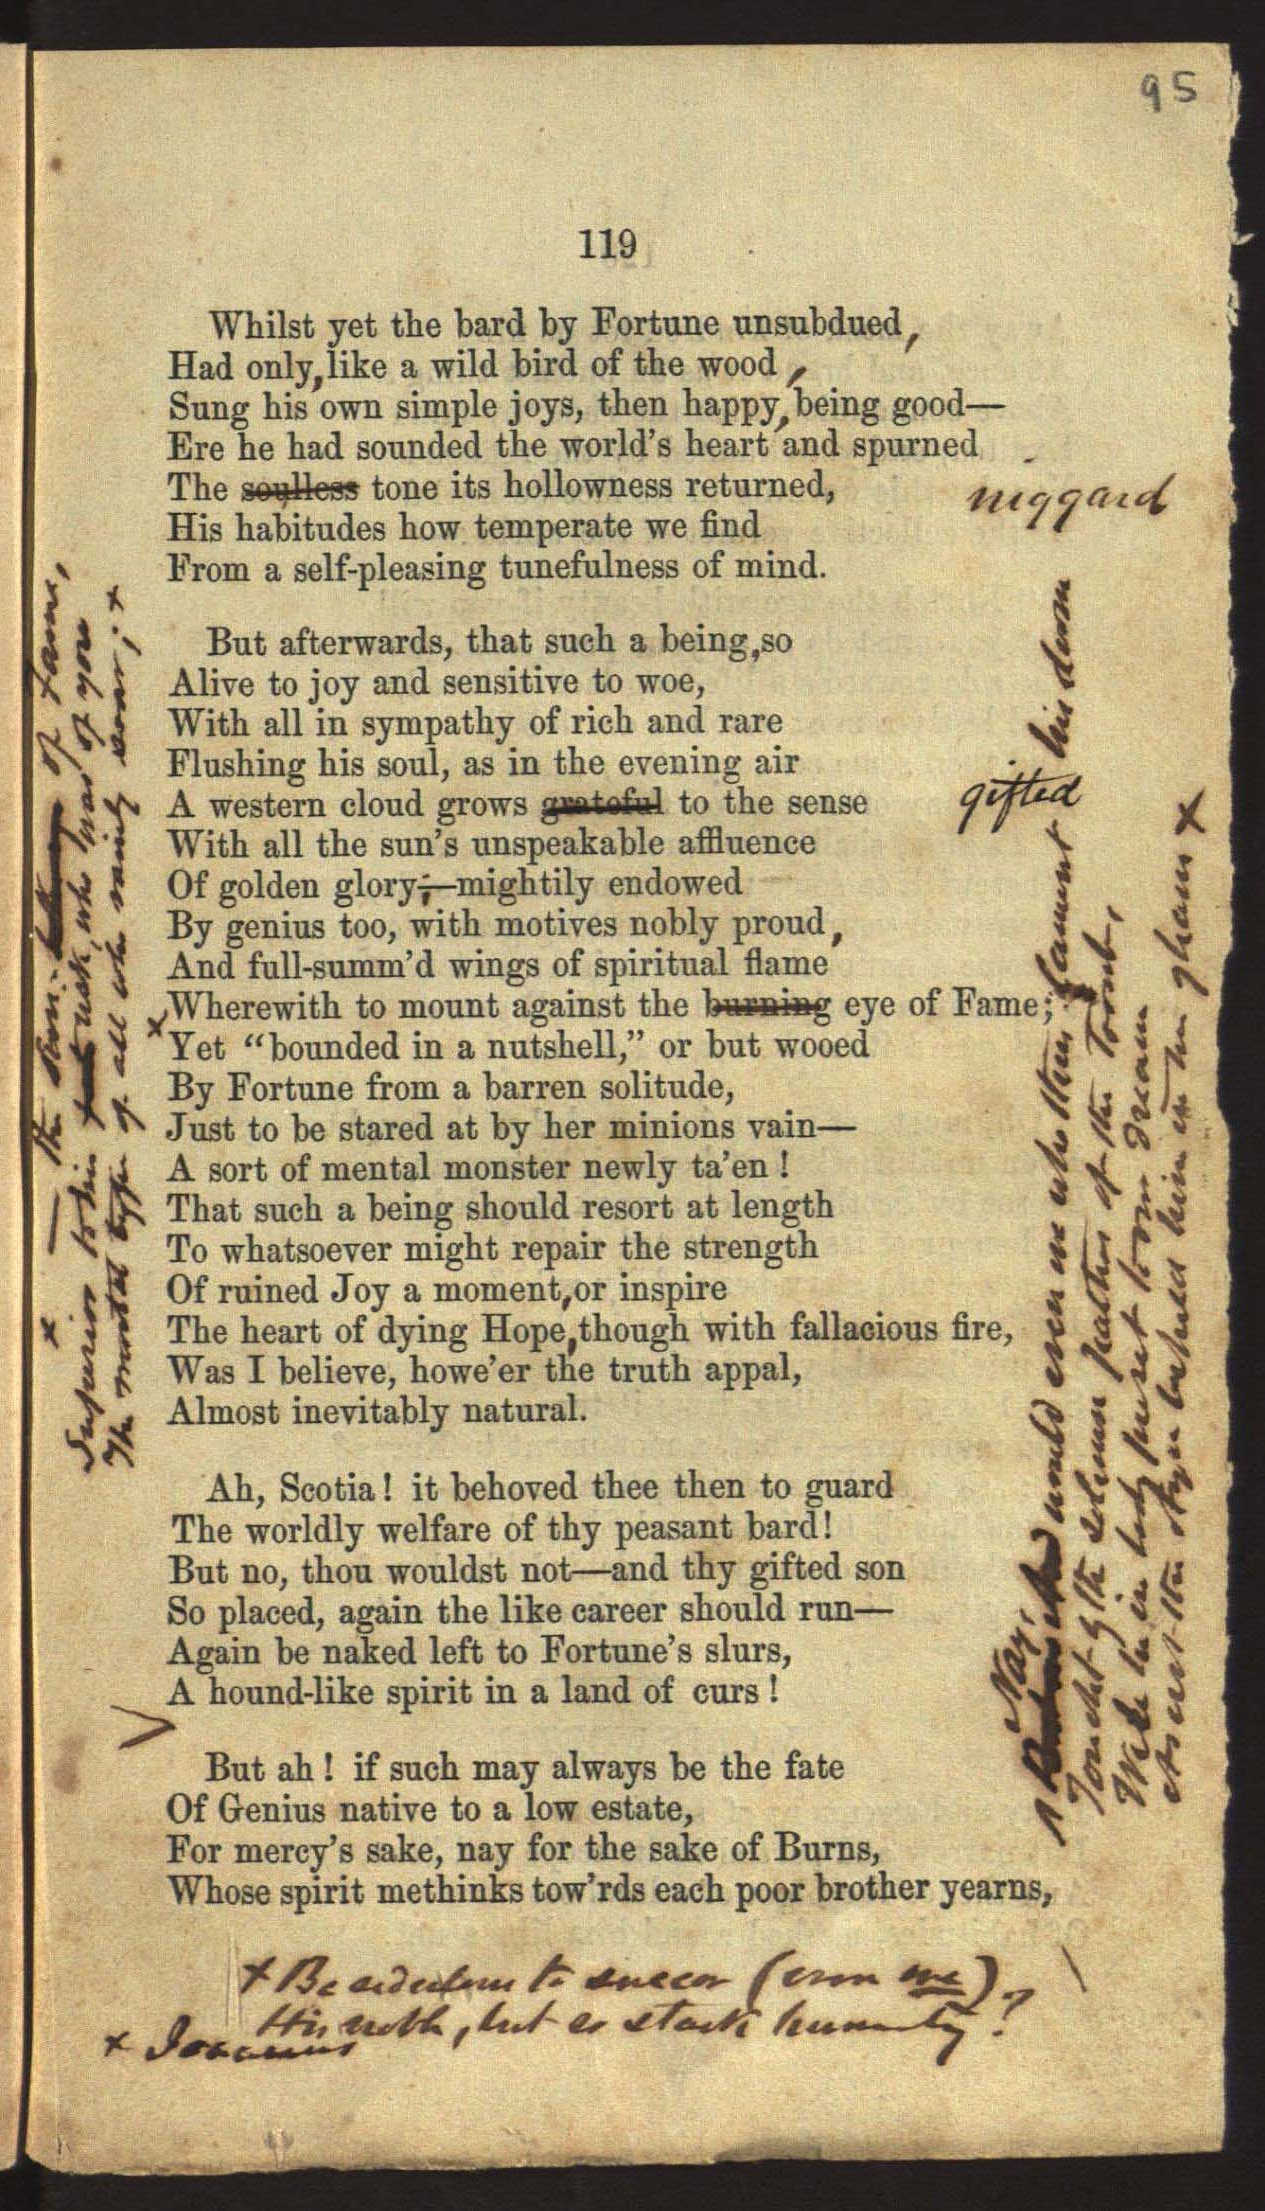 95
119
Whilst yet the bard by Fortune unsubdued,
Had only, like a wild bird of the wood,
Sung his own simple joys, then happy, being good—
Ere he had sounded the world's heart and spurned
The soulless tone its hollowness returned,
niggard
His habitudes how temperate we find
From a self-pleasing tunefulness of mind.
But afterwards, that such a being, so
Alive to joy and sensitive to woe,
With all in sympathy of rich and rare
Flushing his soul, as in the evening air
A western cloud grows grateful to the sense
gifted
With all the sun's unspeakable affluence
Of golden glory;—mightily endowed
By genius too, with motives nobly proud,
And full-summ'd wings of spiritual flame
Wherewith to mount against the burning eye of Fame;
x Yet "bounded in a nutshell," or but wooed
By Fortune from a barren solitude,
Just to be stared at by her minions vain—
A sort of mental monster newly ta'en!
That such a being should resort at length
To whatsoever might repair the strength
Of ruined Joy a moment, or inspire
The heart of dying Hope, though with fallacious fire,
Was I believe, howe'er the truth appal,
Almost inevitably natural.
Ah, Scotia! it behoved thee then to guard
The worldly welfare of thy peasant bard!
But no, thou wouldst not—and thy gifted son
So placed, again the like career should run—
Again be naked left to Fortune's slurs,
A hound-like spirit in a land of curs!
But ah! if such may always be the fate
Of Genius native to a low estate,
For mercy's sake, nay for the sake of Burns,
Whose spirit methinks tow'rds each poor brother yearns,
x Be to succor (even me)
His, but so humanity?
x
x — the of fame,
Superior to his task, who was of yore
The mortal type of all who vainly soar; x
Nay,
would even me who thus lament his doom
Touched by the solemn pathos of the Tomb,
Were he in body present to my dream
the beheld him in her gleam x